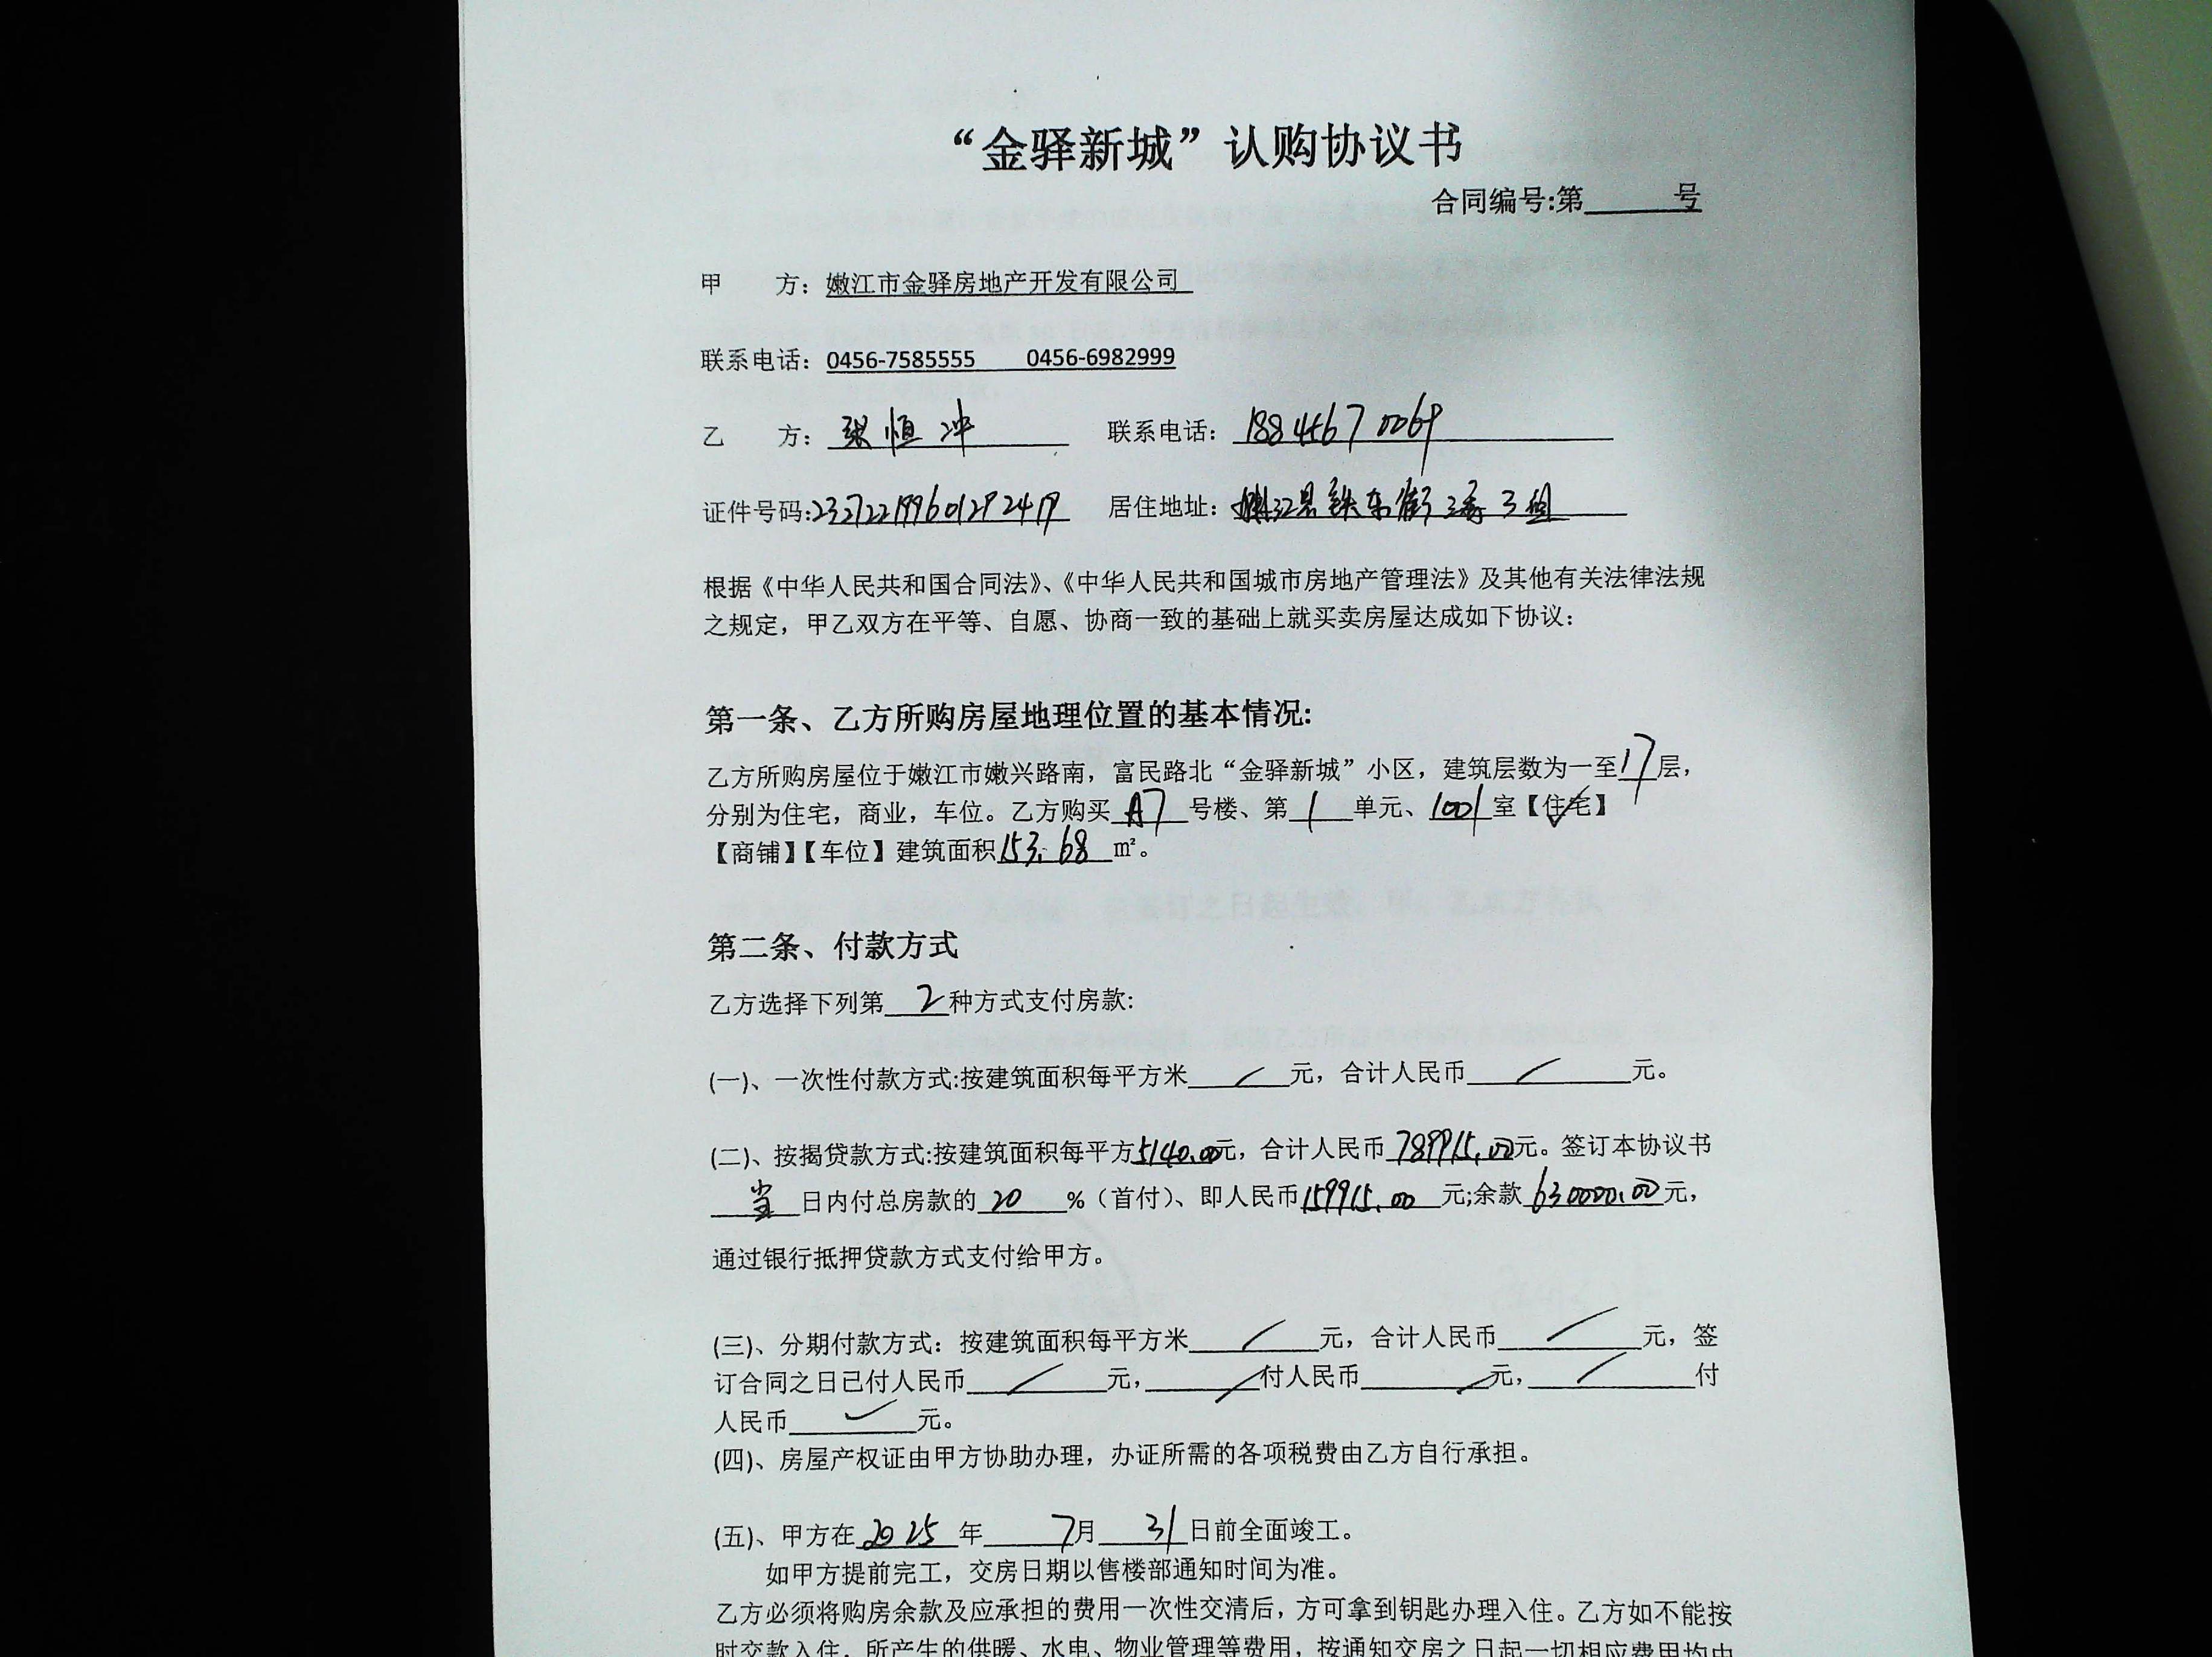 “金驿新城”认购协议书
合同编号:第______号
甲 方：嫩江市金驿房地产开发有限公司
联系电话：0456-7585555 0456-6982999
乙 方：张恒冲 联系电话：18845670069
证件号码:232722199601292419 居住地址：嫩江县铁东街3委3组
根据《中华人民共和国合同法》、《中华人民共和国城市房地产管理法》及其他有关法律法规
之规定，甲乙双方在平等、自愿、协商一致的基础上就买卖房屋达成如下协议：
第一条、乙方所购房屋地理位置的基本情况:
乙方所购房屋位于嫩江市嫩兴路南，富民路北“金驿新城”小区，建筑层数为一至17层，
分别为住宅，商业，车位。乙方购买A7号楼、第1单元、1001室【住宅】
【商铺】【车位】建筑面积153.68m²。
第二条、付款方式
乙方选择下列第2种方式支付房款:
(一)、一次性付款方式:按建筑面积每平方米/元，合计人民币/元。
(二)、按揭贷款方式:按建筑面积每平方5140.00元，合计人民币789915.00元。签订本协议书
当日内付总房款的20%（首付）、即人民币159915.00元;余款630000.00元，
通过银行抵押贷款方式支付给甲方。
(三)、分期付款方式：按建筑面积每平方米/元，合计人民币/元，签
订合同之日己付人民币/元，/付人民币/元，/付
人民币/元。
(四)、房屋产权证由甲方协助办理，办证所需的各项税费由乙方自行承担。
(五)、甲方在2025年7月31日前全面竣工。
如甲方提前完工，交房日期以售楼部通知时间为准。
乙方必须将购房余款及应承担的费用一次性交清后，方可拿到钥匙办理入住。乙方如不能按
时交款入住，所产生的供暖、水电、物业管理等费用，按通知交房之日起一切相应费用均由